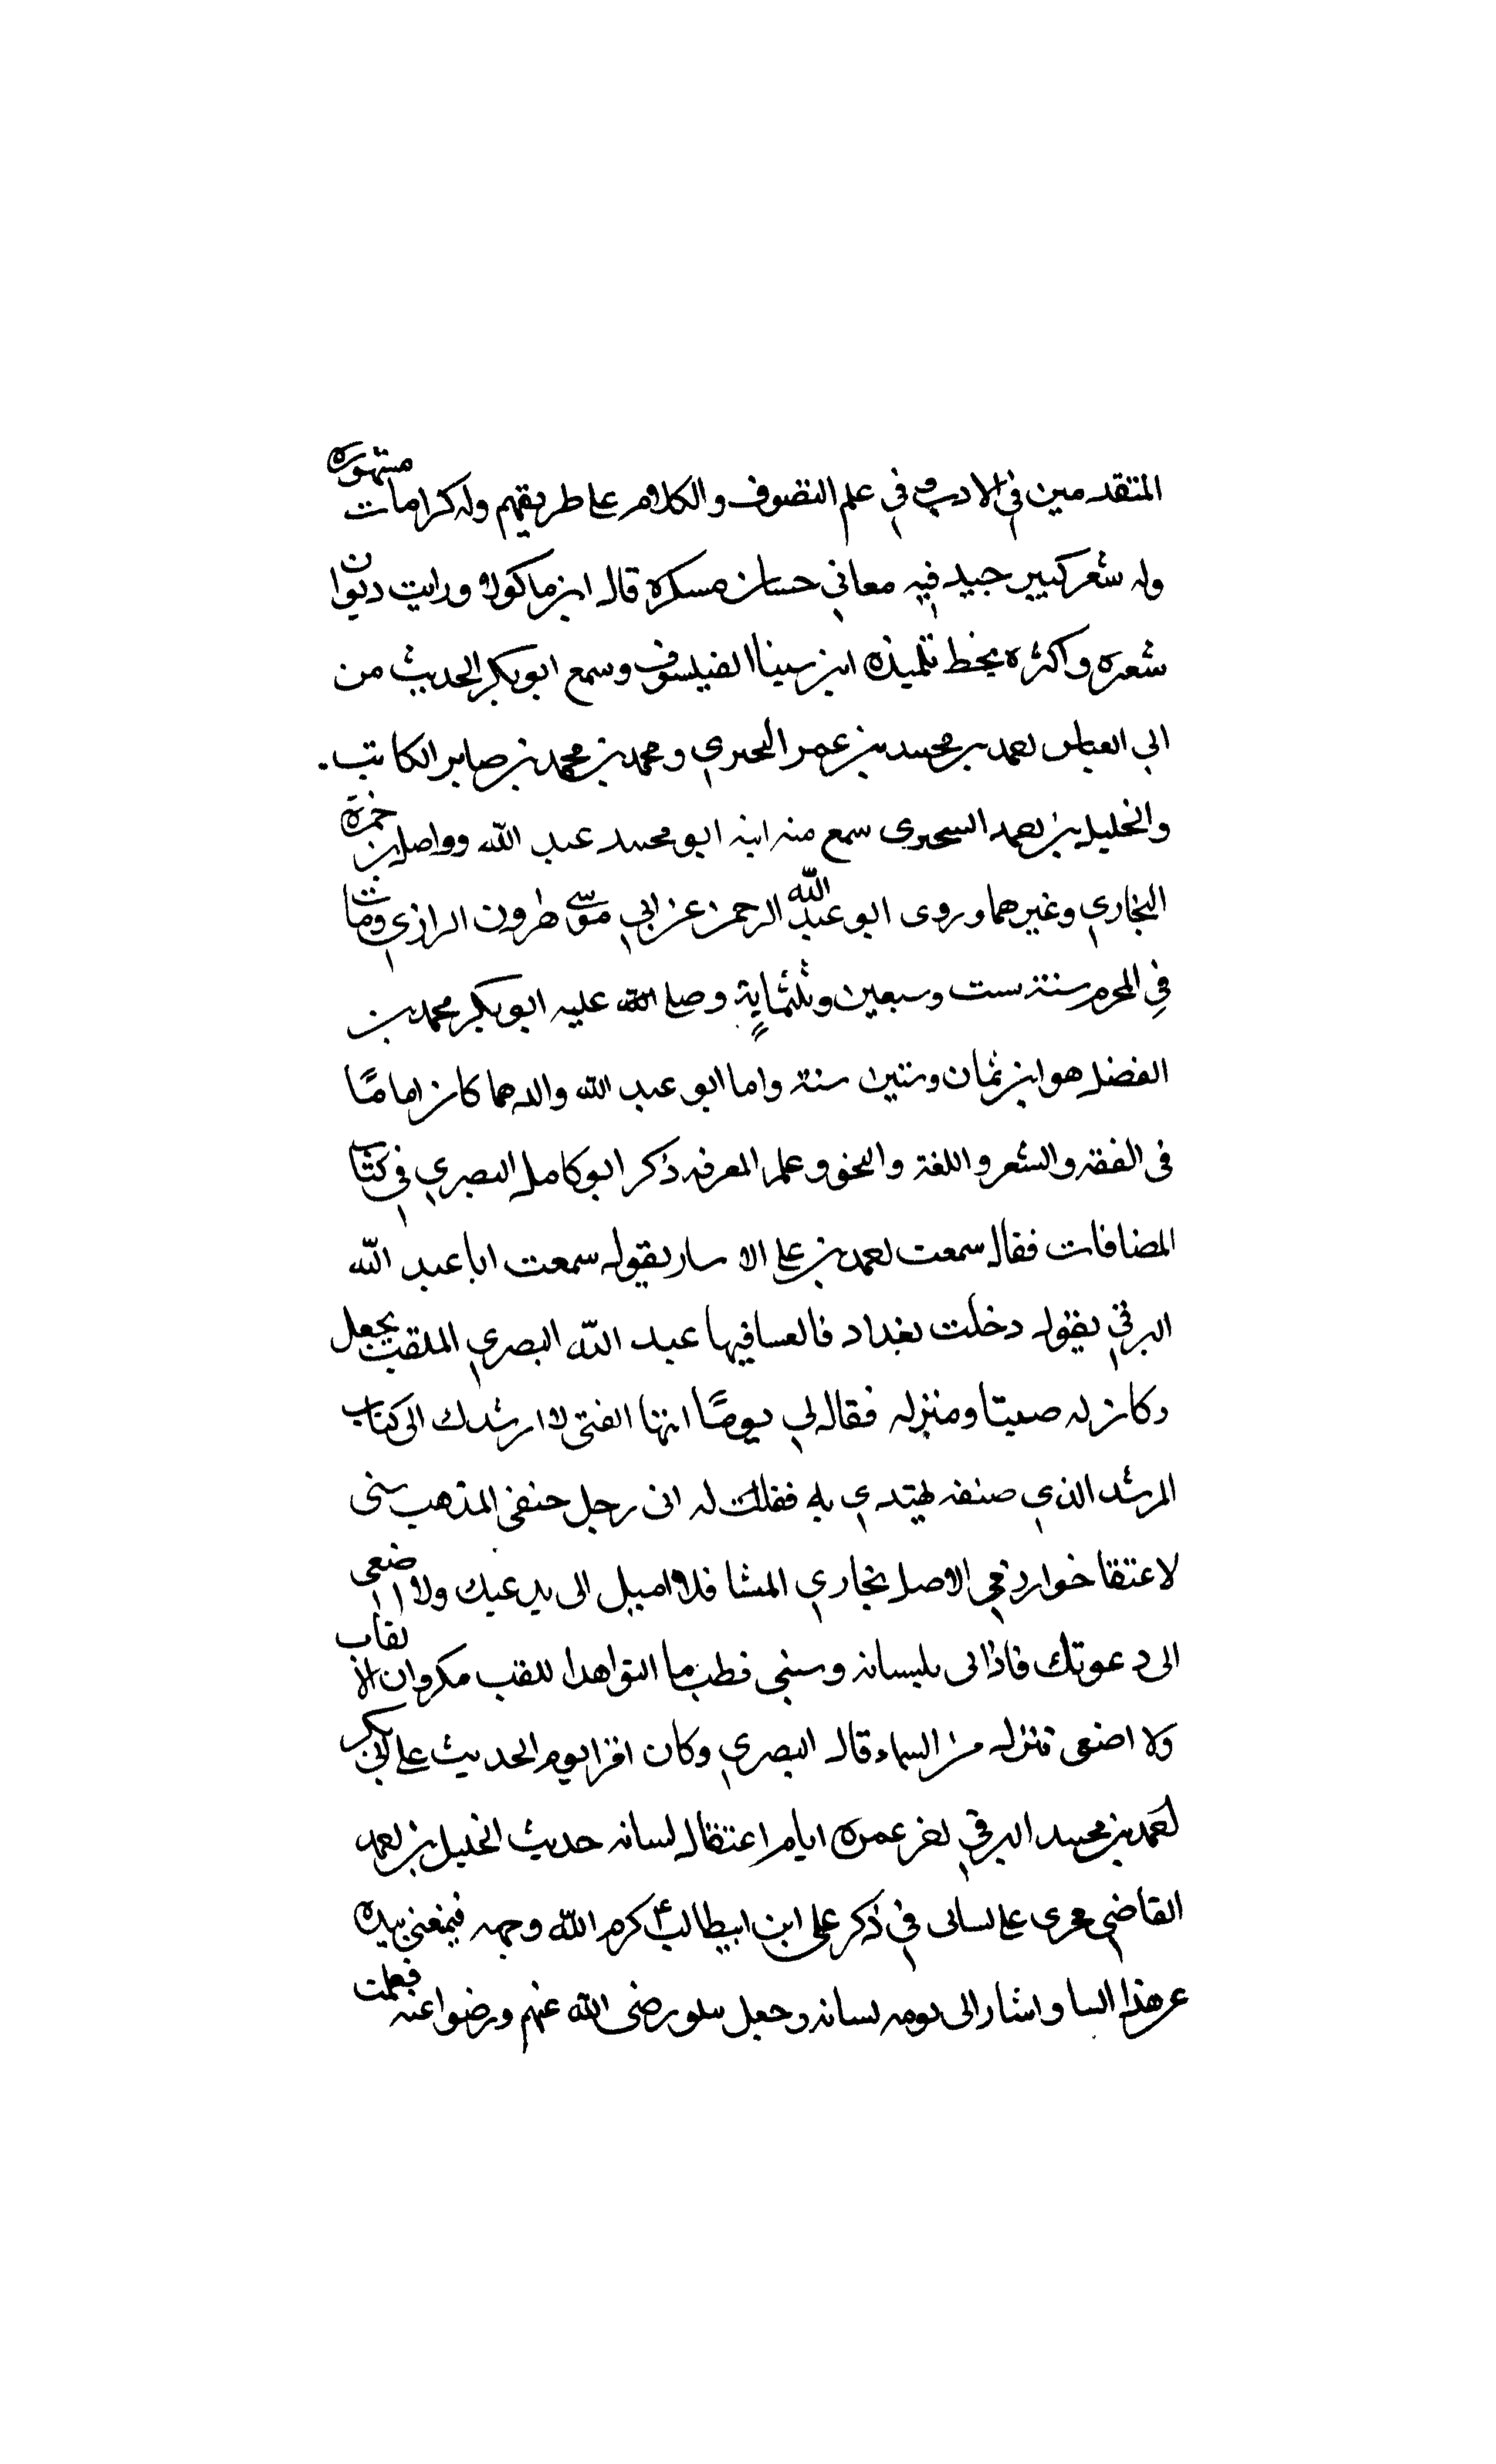 المتقدمين في الادب و في علم التصوف والكلام على طريقهم وله كرامات مشهورة
وله شعر كبير جيد فيه معاني حسان مسكره قال ابن ماكولا ورايت ديوان
شعره واكثره بخط تلميذه ابن سينا الفيلسوف وسمع ابو بكر الحديث من
ابي العباس احمد بن محمد بن عمر البحيري ومحمد بن محمد بن صابر الكاتب
والخليل بن احمد السجزى سمع منه ابنه ابو محمد عبد الله وواصل بن حمزة
البخاري وغيرهما وروى ابو عبد الله الرحمن عن ابي موسى هارون الرازي ومات
في المحرم سنة ست وسبعين وثلثماية وصلى الله عليه ابو بكر محمد بن
الفضل هو ابن ثمان وستين سنة واما ابو عبد الله والدهما كان اماما
في الفقه والشعر واللغة والنحو وعلم المعرفه ذكر ابو كامل البصري في كتاب
المضافات فقال سمعت احمد بن على يقول سمعت ابا عبد الله
البرقي يقول دخلت بغداد فيها عبد الله البصري الملقب بجعل
وكان له صيتا ومنزله فقال لي يوما ايها الفتى لا ارشدك الى كتاب
المرشد الذي صنفه لهتدي به فقلت له انى رجل حنفي المذهب سنى
لاعتقا خوارزمي الاصل بخاري المنشا فلا اميل الى بدعتك ولا اصغى
الى دعوتك فاذانى بلسانه وسبنى اللقب مكروان الالقاب
ولا اصغى تنزل من السماء قال البصري وكان اقرا يوم الحديث على ابي بكر
احمد بن محمد البرقي عمره ايام اعتقال لسانه حديث الخليل بن احمد
القاضي فجرى على لسانى في ذكر على ابن ابيطالب كرم الله وجهه فيمنعنى بيده
عن هذا واشار الى لسانه وجعل رضى الله عنهم ورضوا عنه فعلمت